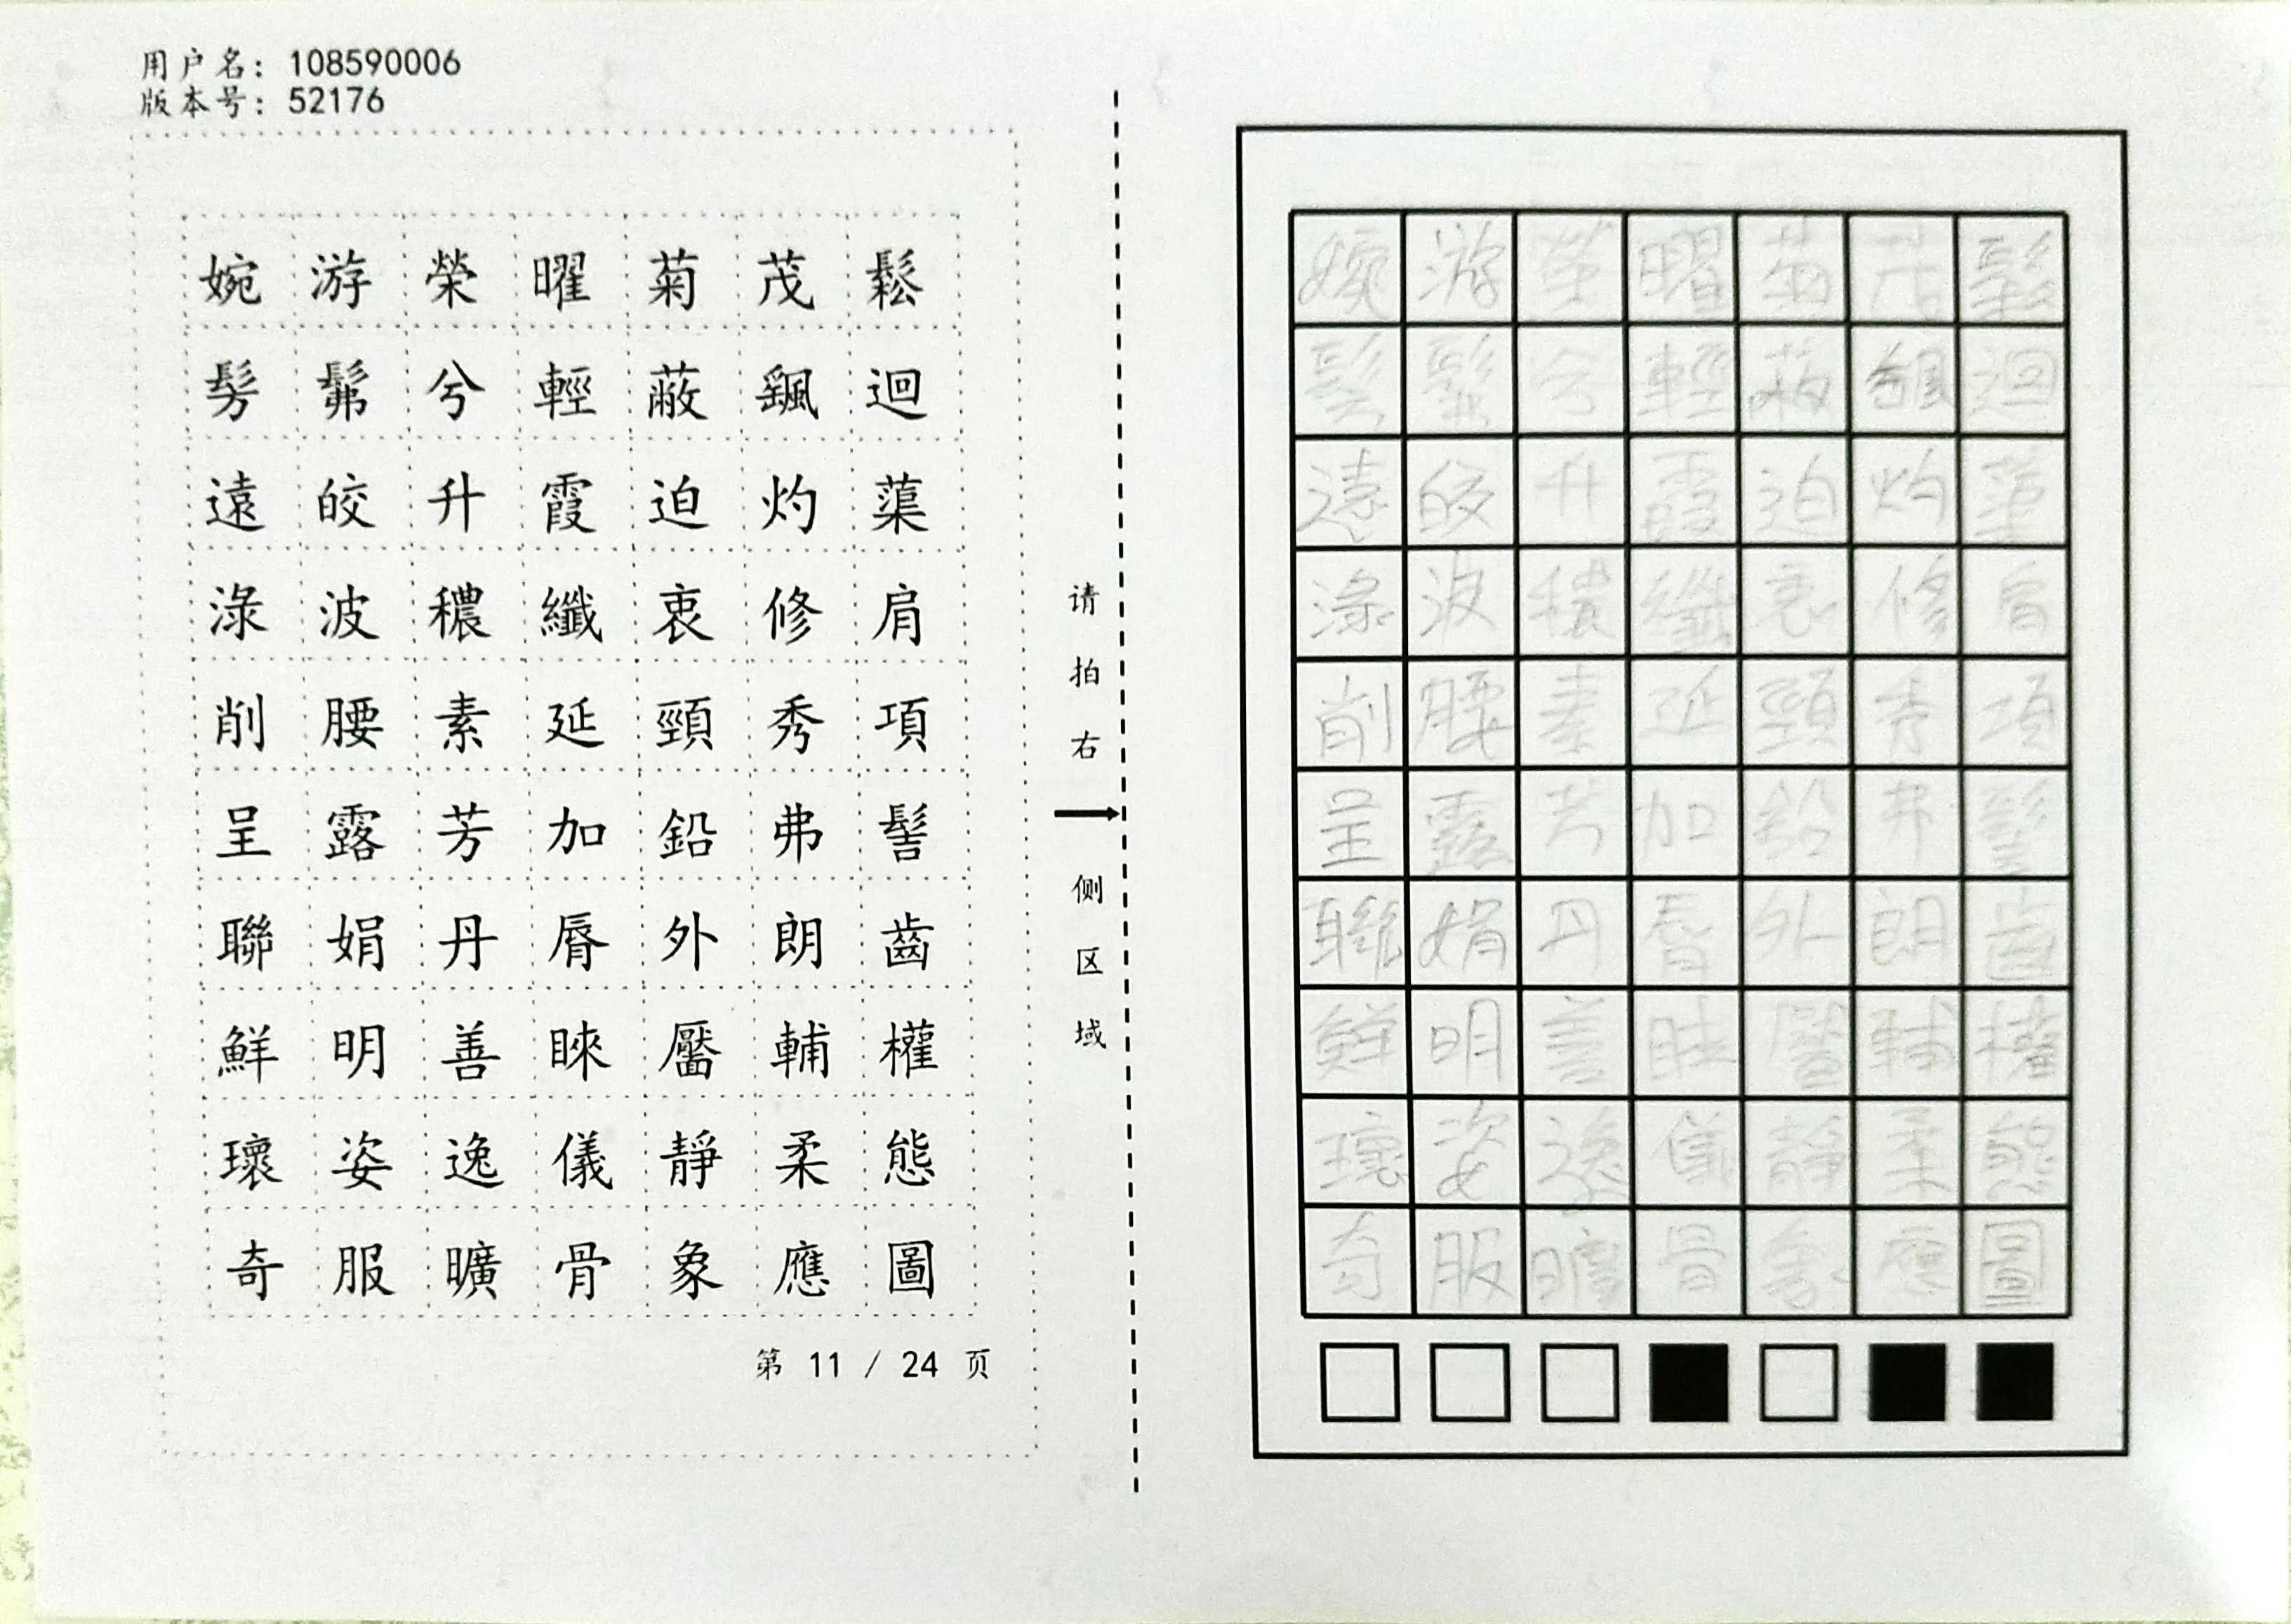 用户名：108590006
版本号：52176
婉 游 榮 曜 菊 茂 鬆
髣 髴 兮 輕 蔽 飖 迴
遠 皎 升 霞 迫 灼 蕖
淥 波 穠 纖 衷 修 肩
削 腰 素 延 頸 秀 項
呈 露 芳 加 鉛 弗 髻
聯 娟 丹 脣 外 朗 齒
鮮 明 善 睞 靨 輔 權
瓌 姿 逸 儀 靜 柔 態
奇 服 曠 骨 象 應 圖
第 11 / 24 页
请拍右侧区域
婉 游 榮 曜 菊 茂 鬆
髣 髴 兮 輕 蔽 飖 迴
遠 皎 升 霞 迫 灼 蕖
淥 波 穠 纖 衷 修 肩
削 腰 素 延 頸 秀 項
呈 露 芳 加 鉛 弗 髻
聯 娟 丹 脣 外 朗 齒
鮮 明 善 睞 靨 輔 權
瓌 姿 逸 儀 靜 柔 態
奇 服 曠 骨 象 應 圖